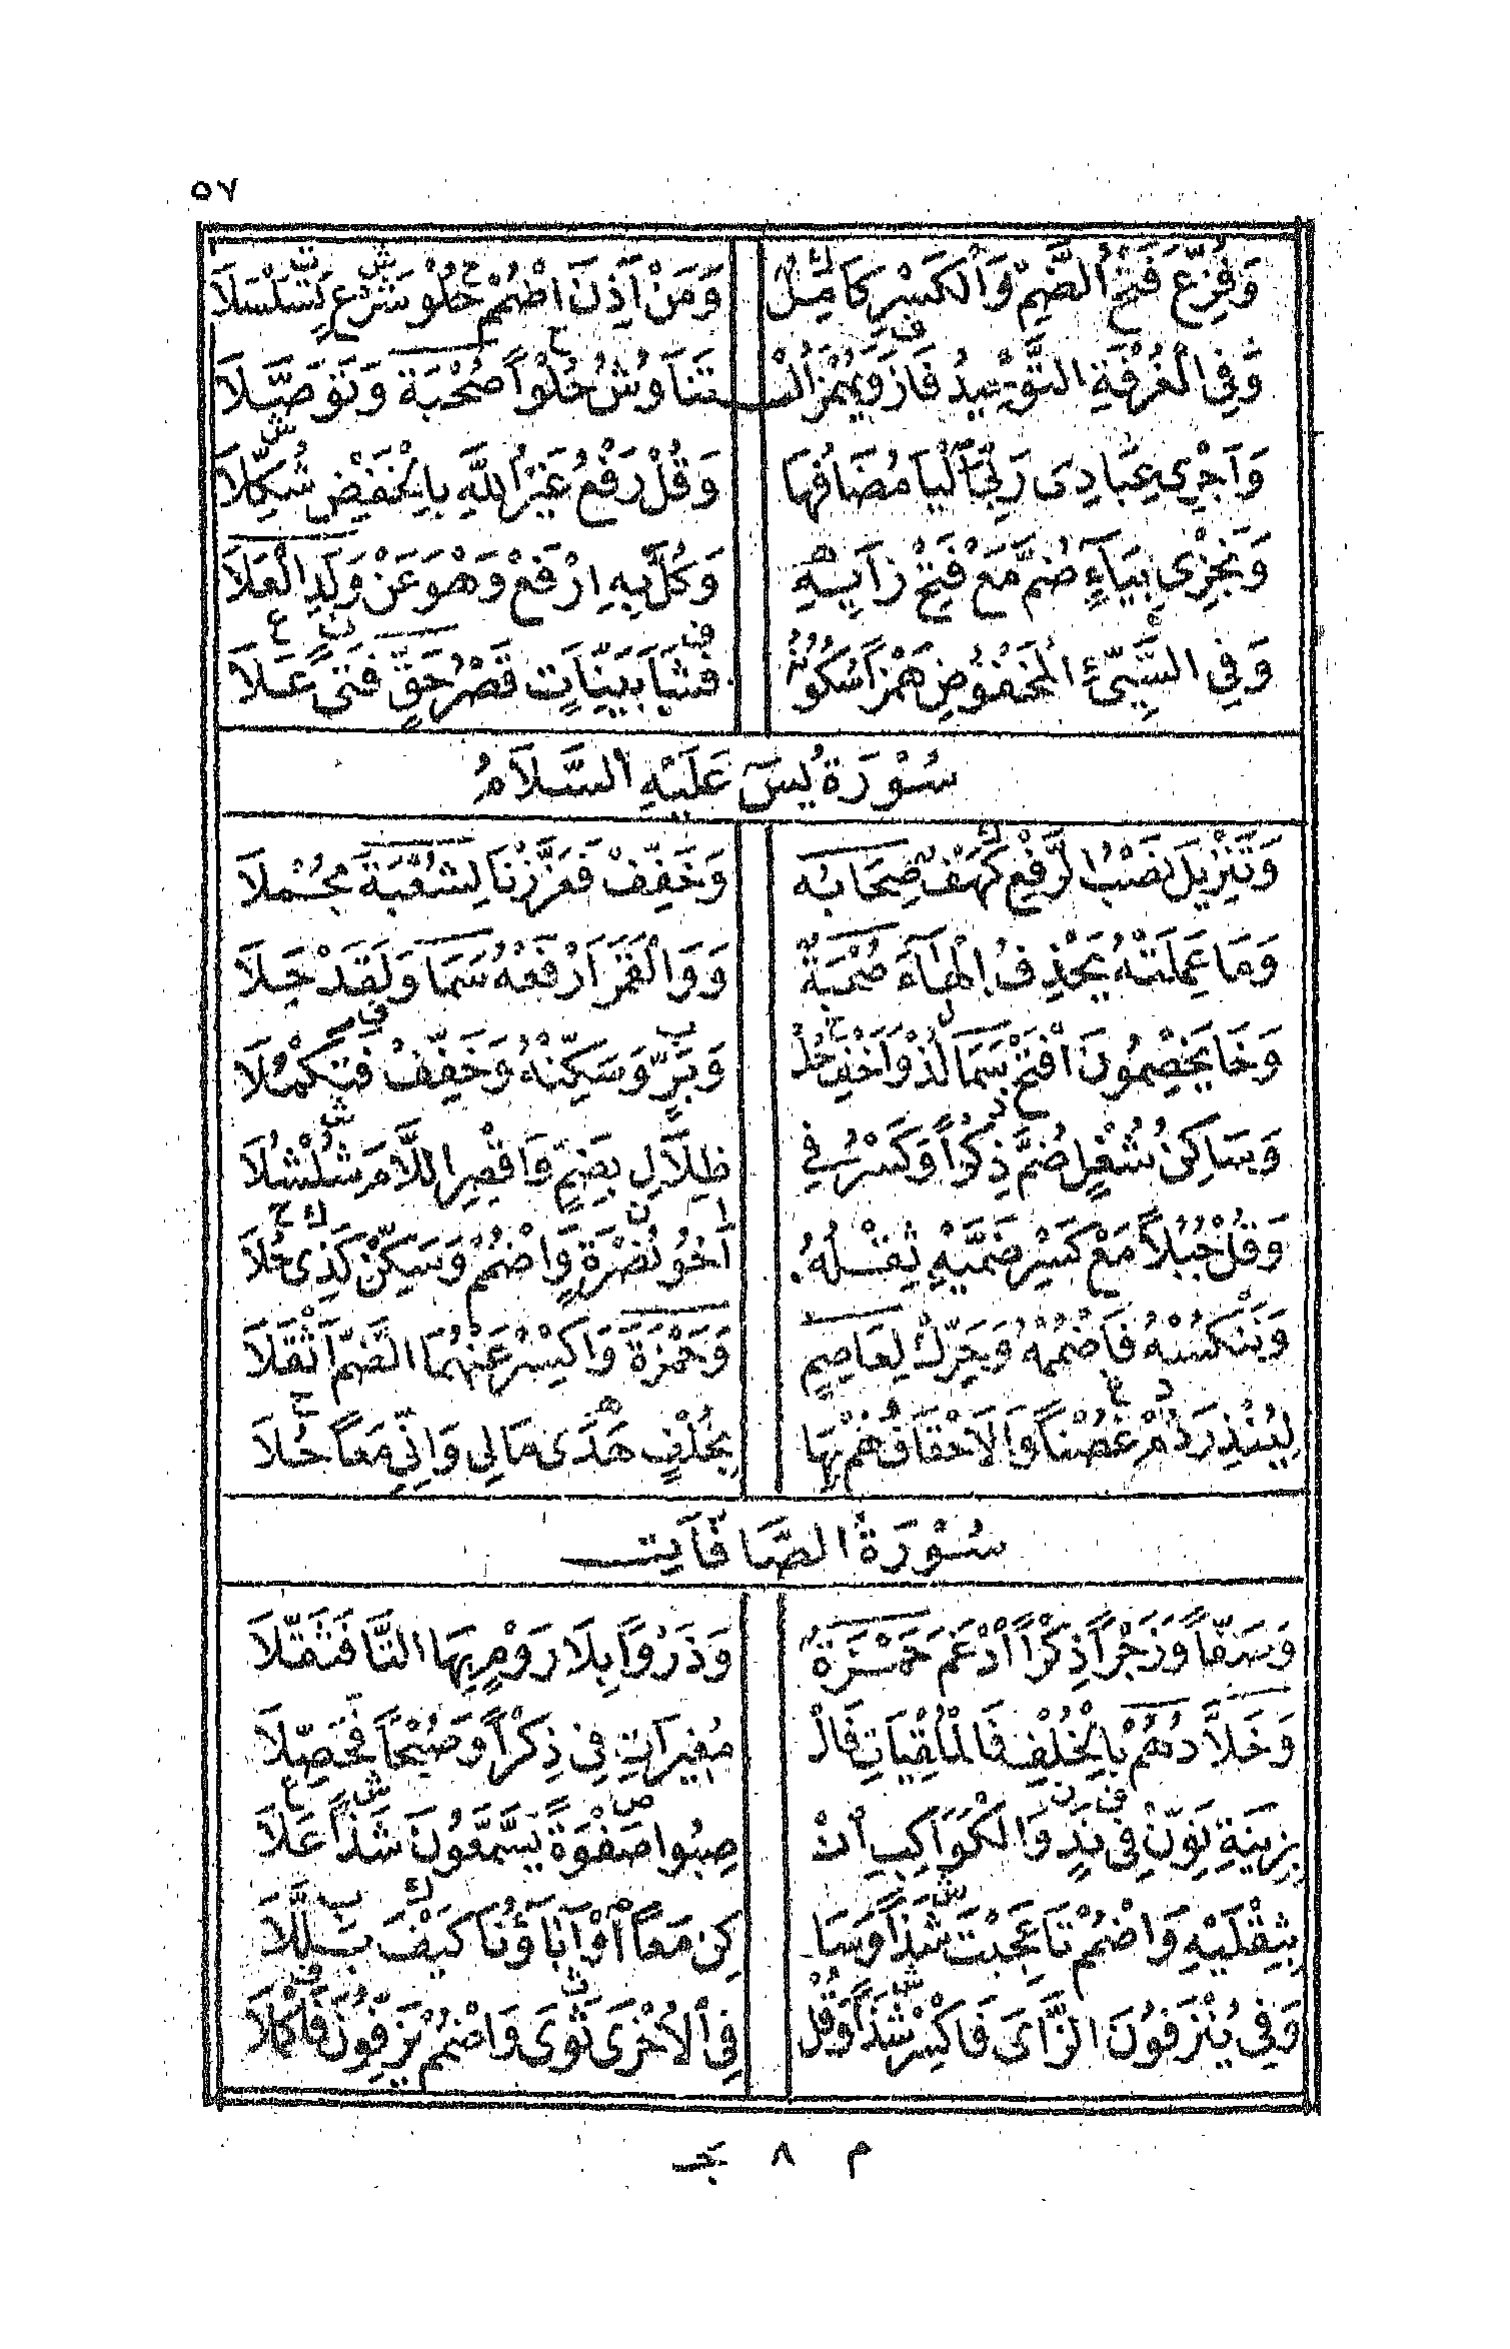 ٥٧
وَفُزِّعَ فَتْحُ الضَّمِّ وَالْكَسْرِ كَامِلٌ وَمَنْ أَذِنَ اضْمُمْ حُلْوَ شَرْعٍ تَسَلْسَلَا
وَفِي الْغُرْفَةِ التَّوْحِيدُ فَازَ وَيُهْمَزُ التَّنَاوُشُ حُلْواً صُحْبَةً وَتَوَصَّلَا
وَأَجْرِي عِبَادِيَ رَبِّيَ الْيَا مُضَافُهَا وَقُلْ رَفْعُ غَيْرُ اللَّهِ بِالْخَفْضِ شُكِّلَا
وَنَجْزِي بِيَاءٍ ضُمَّ مَعْ فَتْحِ زَايِهِ وَكُلَّ بِهِ ارْفَعْ وَهْوَ عَنْ وَلَدِ الْعَلَا
وَفِي السَّيِّئِ الْمَخْفُوضِ هَمْزاً سُكُونُهُ فَشَا بَيِّنَاتٍ قَصْرُ حَقٍّ فَتًى عَلَا
سُوْرَةُ يٰسٓ عَلَيْهِ السَّلَامُ
وَتَنْزِيلَ نَصْبُ الرَّفْعِ كَهْفُ صِحَابِهِ وَخَفِّفْ فَعَزَّزْنَا لِشُعْبَةَ مُجْمِلَا
وَمَا عَمِلَتْهُ يَحْذِفُ الْهَاءَ صُحْبَةٌ وَوَالْقَمَرَ ارْفَعْهُ سَمَا وَلَقَدْ حَلَا
وَخَا يَخْصِمُونَ افْتَحْ سَمَا لُذْ وَأَخْفِ حُلْ وَبَرٍّ وَسَكِّنْهُ وَخَفِّفْ فَتُكْمِلَا
وَسَاكِنَ شُغْلٍ ضُمَّ ذِكْراً وَكَسْرُ فِي ظِلَالٍ بِضَمٍّ وَاقْصُرِ اللَّامَ شُلْشُلَا
وَقُلْ جُبُلاً مَعْ كَسْرِ ضَمَّيْهِ ثِقْلُهُ أَخُو نُصْرَةٍ وَاضْمُمْ وَسَكِّنْ كَذِي حُلَا
وَنَنْكُسْهُ فَاضْمُمْهُ وَحَرِّكْ لِعَاصِمٍ وَحَمْزَةَ وَاكْسِرْ عَنْهُمَا الضَّمَّ أَثْقَلَا
لِيُنْذِرَ دُمْ غُصْناً وَالاَحْقَافُ هُمْ بِهَا بِخُلْفٍ هَدَى مَالِي وَإِنِّي مَعاً حُلَا
سُوْرَةُ الصَّافَّاتِ
وَصَفّاً وَزَجْراً ذِكْراً أَدْغَمَ حَمْزَةٌ وَذَرْواً بِلَا رَوْمٍ بِهَا التَّا فَثَقَّلَا
وَخَلَّادُهُمْ بِالْخُلْفِ فَالْمُلْقِيَاتِ فَالْ مُغِيرَاتِ فِي ذِكْراً وَصُبْحاً فَحَصِّلَا
بِزِينَةِ نَوِّنْ فِي نَدٍ وَالْكَوَاكِبِ انْ صِبُوا صَفْوَةً يَسَّمَّعُونَ شَذًا عَلَا
بِثِقْلَيْهِ وَاضْمُمْ تَا عَجِبْتَ شَذاً وَسَا كِنٌ مَعاً أَوْ آبَاؤُنَا كَيْفَ بَلَّلَا
وَفِي يُنْزَفُونَ الزَّايَ فَاكْسِرْ شَذاً وَقُلْ فِي الْأُخْرَى ثَوَى وَاضْمُمْ يَزِفُّونَ فَاكْمُلَا
م ٨